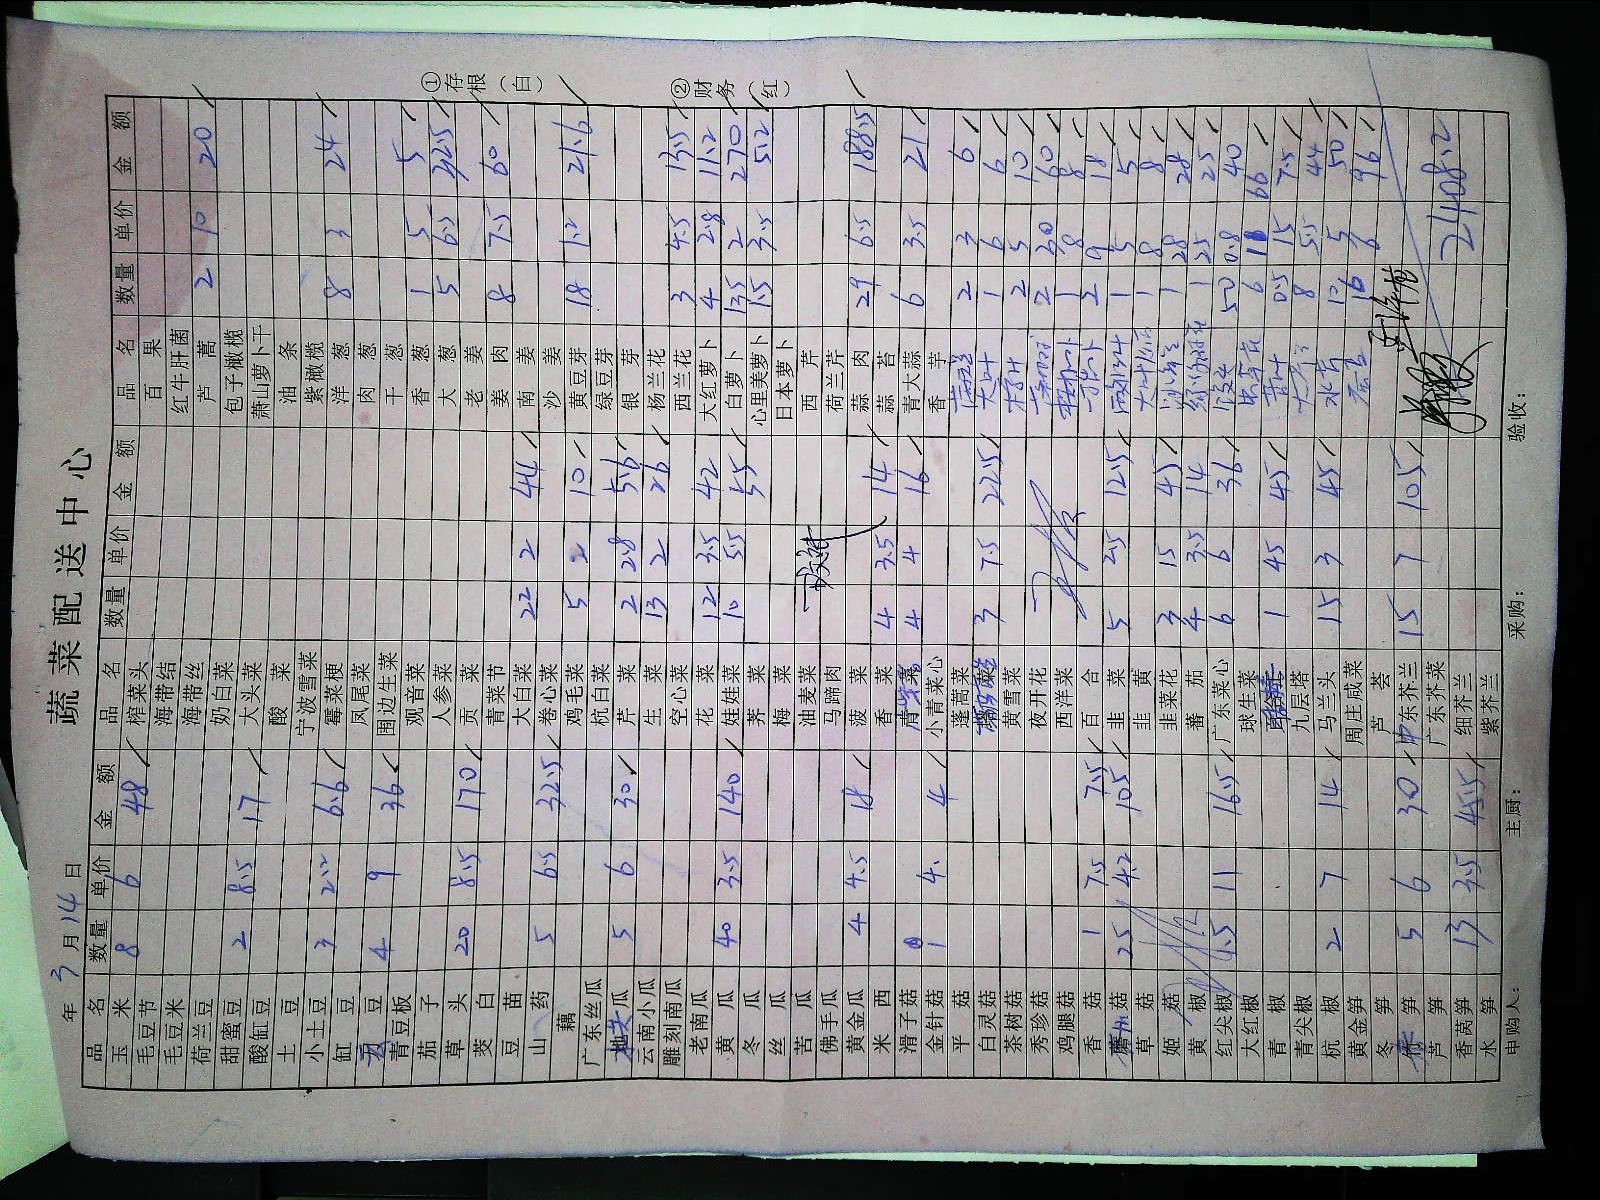 蔬菜配送中心
年 3 月 14 日
品名 数量 单价 金额 品名 数量 单价 金额 品名 数量 单价 金额
玉米 8 6 48 榨菜头 百果
毛豆节 海带结 红牛肝菌
毛豆米 海带丝 芦蒿 2 10 20
荷兰豆 奶白菜 包子橄榄
甜蜜豆 2 8.5 17 大头菜 萧山萝卜干
酸缸豆 酸菜 油条
土豆 宁波雪菜 紫橄榄
小土豆 3 2.2 6.6 霉菜梗 洋葱 8 3 24
缸豆 凤尾菜 肉葱
刀豆 4 9 36 围边生菜 干葱
青豆板 观音菜 香葱 1 5 5
茄子 人参菜 大葱 5 6.5 32.5
草头 20 8.5 170 贡菜 老姜
茭白 青菜节 姜肉 8 7.5 60
豆苗 大白菜 22 2 44 南姜
山药 5 6.5 32.5 卷心菜 沙姜
藕 鸡毛菜 5 2 10 黄豆芽 18 1.2 21.6
广东丝瓜 杭白菜 绿豆芽
瓜 5 6 30 芹菜 2 2.8 5.6 银芽
云南小瓜 生菜 13 2 26 杨兰花
雕刻南瓜 空心菜 西兰花 3 4.5 13.5
老南瓜 花菜 12 3.5 42 大红萝卜 4 2.8 11.2
黄瓜 40 3.5 140 娃娃菜 10 5.5 55 白萝卜 135 2 270
冬瓜 荠菜 心里美萝卜 1.5 3.5 5.2
丝瓜 梅菜 日本萝卜
苦瓜 油麦菜 西芹
佛手瓜 马蹄肉 荷兰芹
黄金瓜 4 4.5 18 菠菜 蒜肉 29 6.5 188.5
米西 香菜 4 3.5 14 蒜苔
滑子菇 4 4 16 青大蒜 6 3.5 21
金针菇 1 4. 4 小青菜心 香芋
平菇 蓬蒿菜 2 3 6
白灵菇 3 7.5 22.5 1 6 6
茶树菇 黄雪菜 2 5 10
秀珍菇 夜开花 2 30 60
鸡腿菇 西洋菜 1 8 8
香菇 1 7.5 7.5 百合 2 9 18
蘑菇 25 4.2 105 韭菜 5 2.5 12.5 1 5 5
草菇 韭黄 1 8 8
姬菇 韭菜花 3 15 45 1 28 28
黄椒 蕃茄 4 3.5 14 1 25 25
红尖椒 1.5 11 16.5 广东菜心 6 6 36 50 0.8 40
大红椒 球生菜 6 11 66
青椒 1 45 45 0.5 15 7.5
青尖椒 九层塔 8 5.5 44
杭椒 2 7 14 马兰头 15 3 45 10 5 50
黄金笋 周庄咸菜 16 6 96
冬笋 芦荟
笋 5 6 30 中东芥兰 15 7 105
芦笋 广东芥菜
香莴笋 13 3.5 45.5 细芥兰 2408.2
水笋 紫芥兰
申购人： 主厨： 采购： 验收：
①存根（白）
②财务（红）